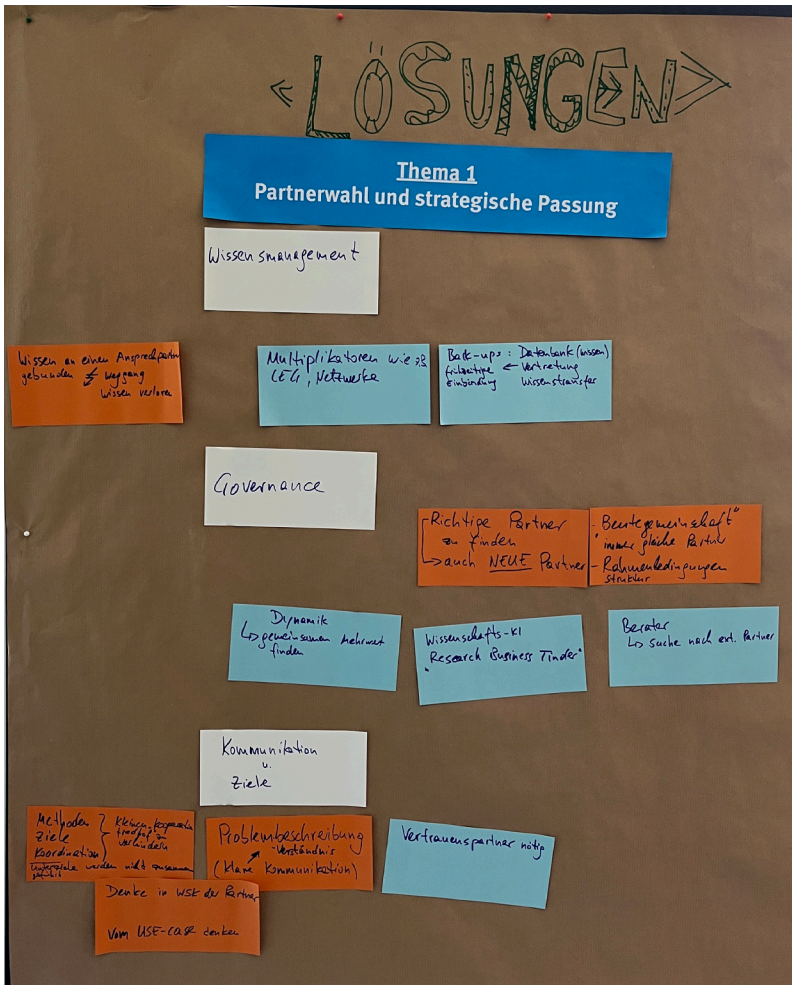 < LÖSUNGEN >
Thema 1
Partnerwahl und strategische Passung
Wissensmanagement
Wissen an einen Ansprechpartner
gebunden ↯ Weggang
Wissen verloren
Multiplikatoren wie z.B.
CEG, Netzwerke
Back-ups : Datenbank (wissen)
frühzeitige ← Vertretung
Einbindung Wissenstransfer
Governance
Richtige Partner
zu finden
↳ auch NEUE Partner
- "Beutegemeinschaft"
immer gleiche Partner
- Rahmenbedingungen
struktur
Dynamik
↳ gemeinsamen Mehrwert
finden
Wissenschafts-KI
"Research Business Tinder"
Berater
↳ Suche nach ext. Partner
Kommunikation
u.
Ziele
Methoden
Ziele
Koordination
Kleinen-
zu
verhindern
Unterziele werden nicht zusammen
geführt
Problembeschreibung
-verständnis
(klare Kommunikation)
Vertrauenspartner nötig
Denke in WSK der Partner
Vom USE-CASE denken